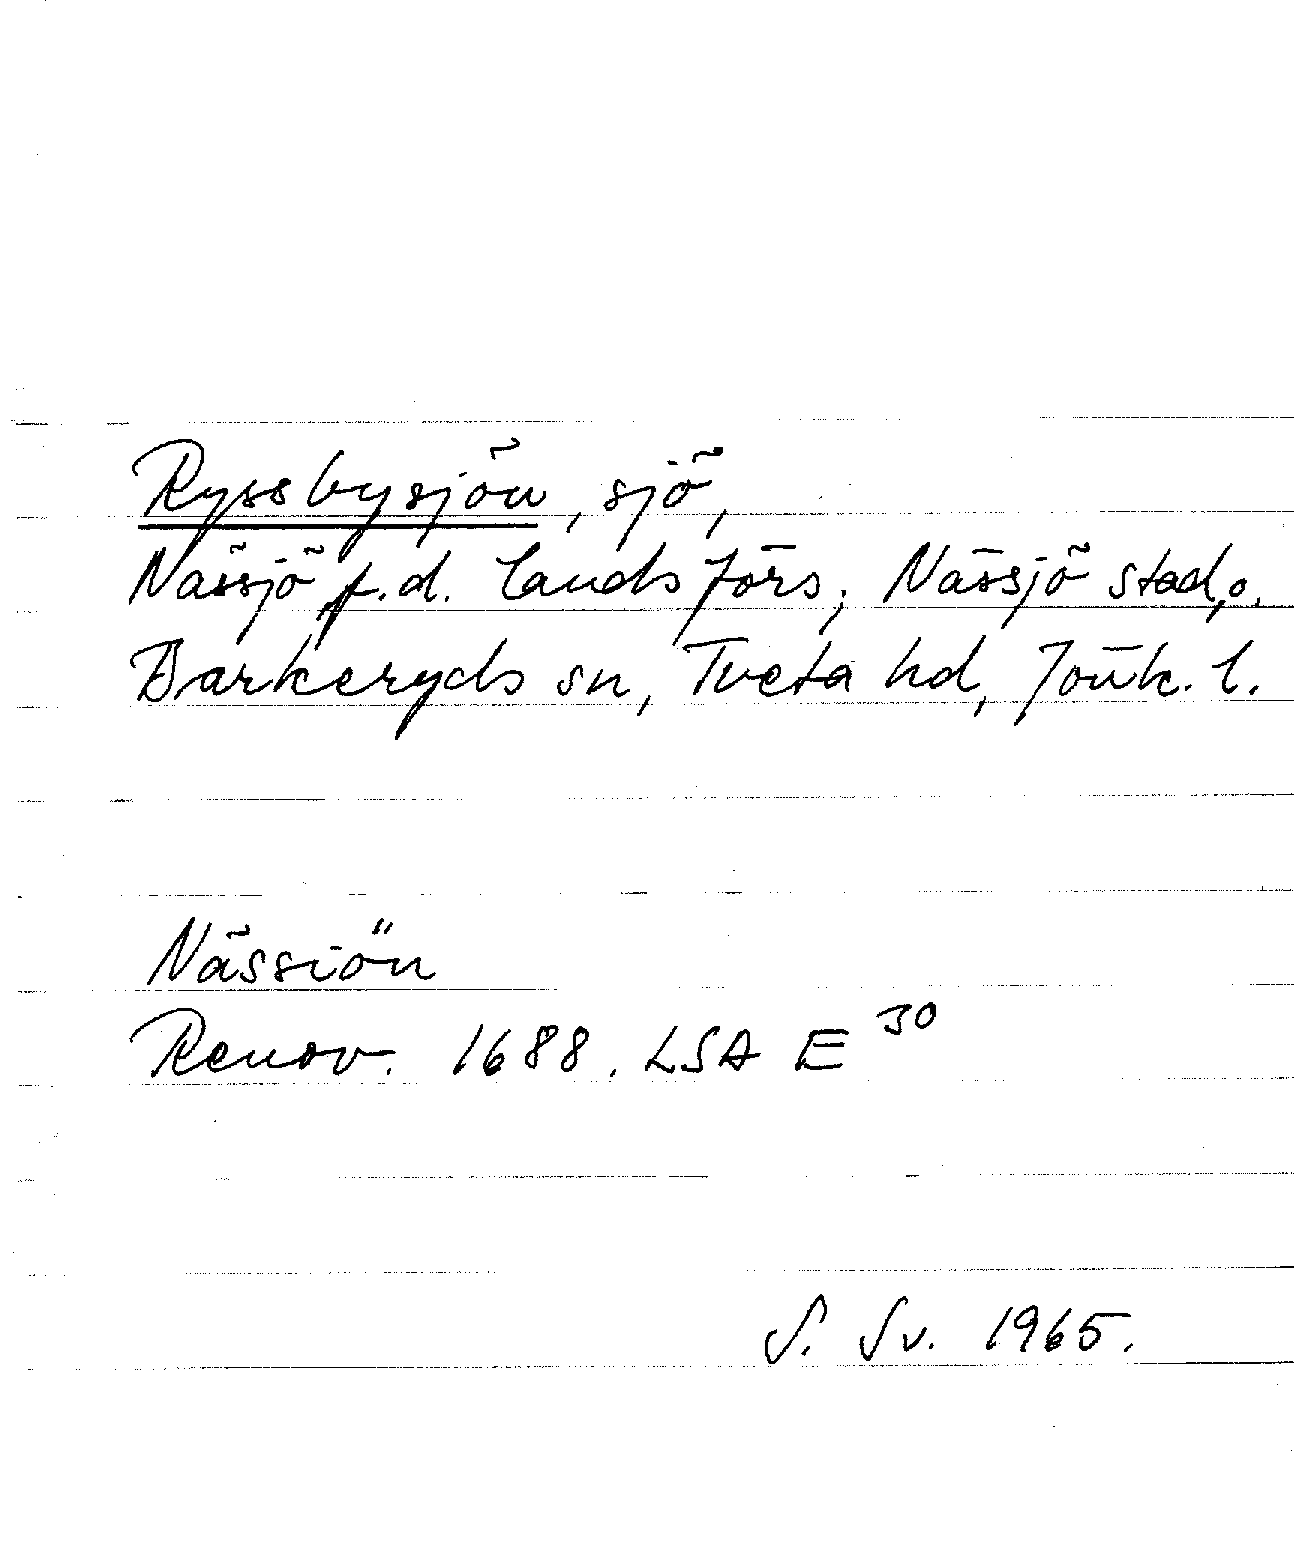 Ryssbysjön, sjö,
Nässjö f.d. landsförs; Nässjö stad, o.
Barkeryds sn, Tveta hd, Jönk. l.
Nässiön
Renov. 1688. LSA E 30
S. Sv. 1965.